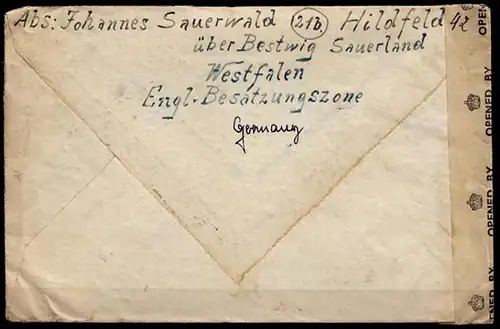 Abs: Johannes Sauerwald (21b) Hildfeld 42
über Bestwig Sauerland
Westfalen
Engl. Besatzungszone
Germany
OPENED BY OPENED BY OPENED BY OPEN